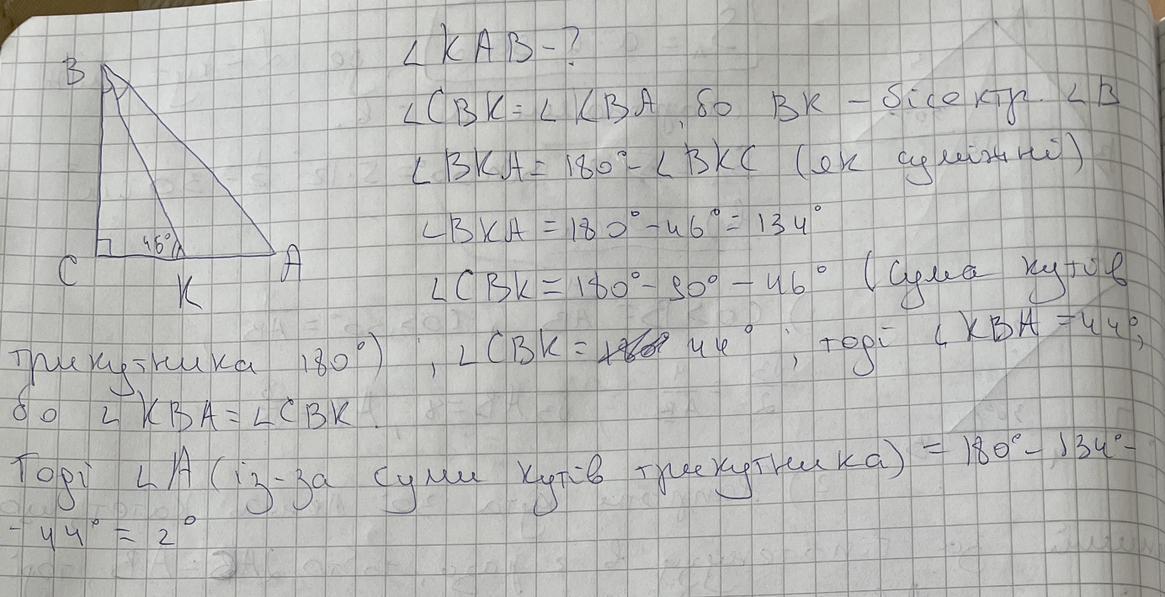 ∠KAB-?
B
∠CBK=∠KBA, бо BK – бісектр. ∠B
∠BKA=180°-∠BKC (як суміжні)
∠BKA=180°-46°=134°
46°
C
K
A
∠CBK=180°-90°-46° (сума кутів
трикутника 180°) ; ∠CBK= 44° ; тоді ∠KBA=44°,
бо ∠KBA=∠CBK.
Тоді ∠A (із-за суми кутів трикутника) = 180°-134°-
-44°=2°